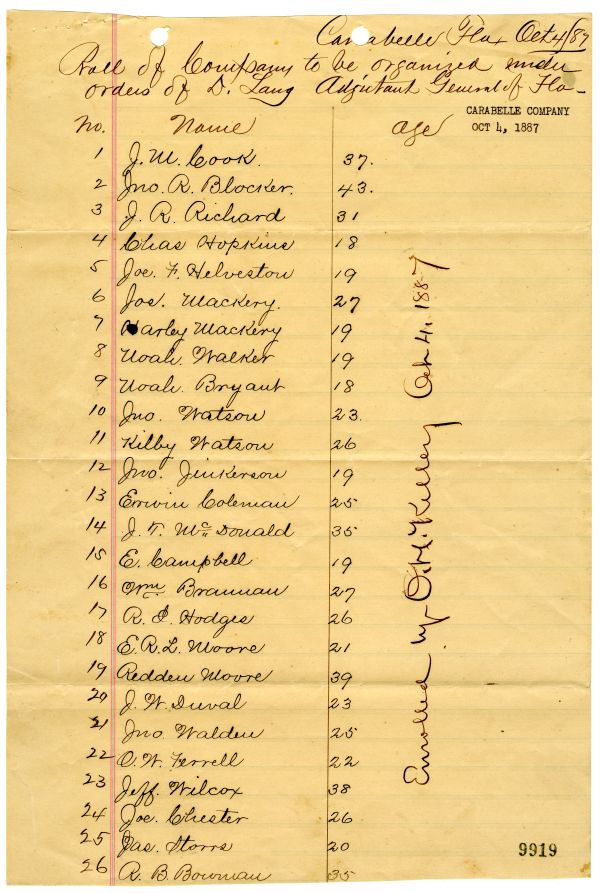 Carabelle Fla Oct 4/87
Roll of Company to be organized under
orders of D. Lang Adjutant General of Fla-
CARABELLE COMPANY
OCT 4, 1887
No. Name age
1 J. M. Cook. 37.
2 Jno. R. Blocker. 43.
3 J. R. Richard 31
4 Chas Hopkins 18
5 Joe. F. Helveston 19
6 Jos. Mackery. 27
7 Harley Mackery 19
8 Noah. Walker 19
9 Noah. Bryant 18
10 Jno. Watson 23.
11 Kilby Watson 26
12 Jno. Jinkerson 19
13 Erwin Coleman 25
14 J. T. McDonald 35
15 E. Campbell 19
16 Wm Brannan 27
17 R. E. Hodges 26
18 E. R. L. Moore 21
19 Redden Moore 39
20 J. W. Duval 23
21 Jno. Walden 25
22 O. W. Ferrell 22
23 Jeff. Wilcox 38
24 Joe. Chester 26
25 Jas. Storrs 20
26 R. B. Bowman 35
Enrolled by O. H. Kelley Oct 4, 1887
9919